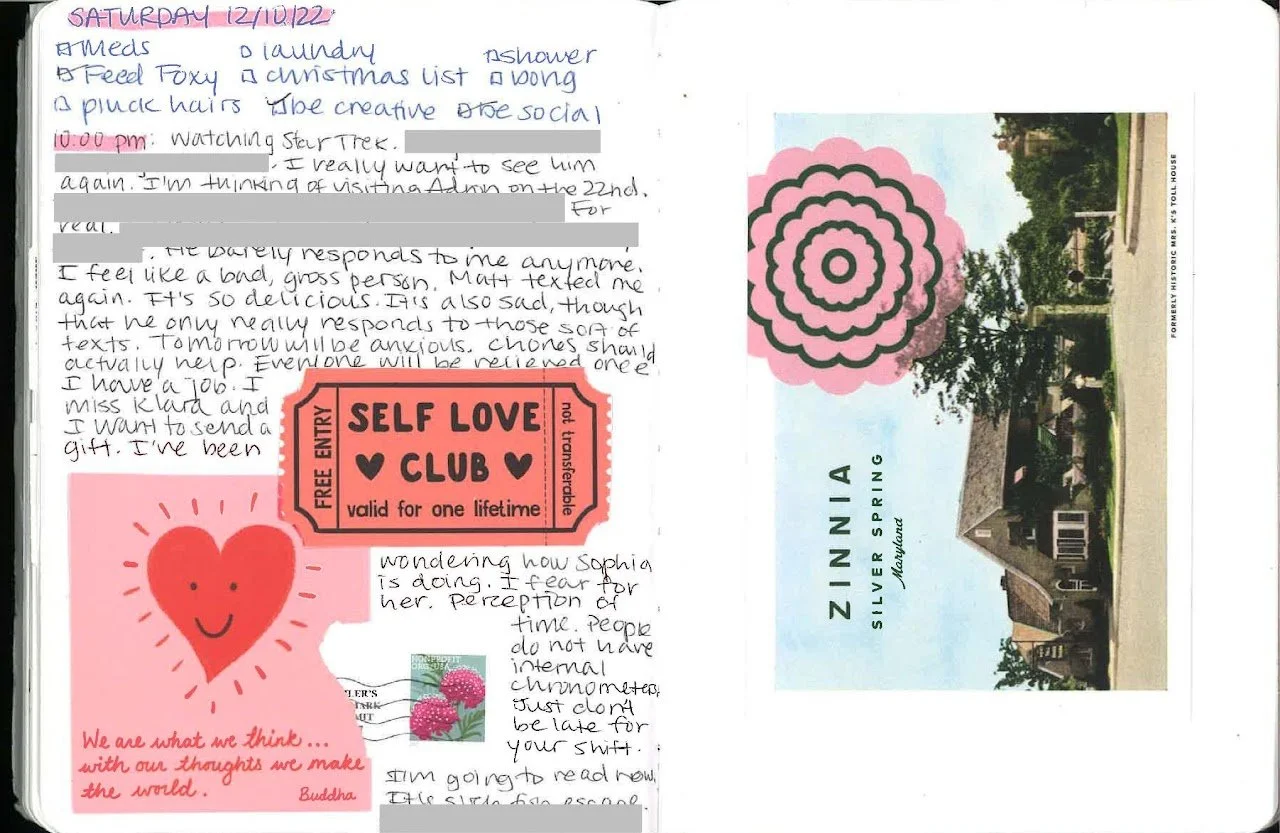 SATURDAY 12/10/22
Meds laundry shower
Feed Foxy christmas list bong
pluck hairs be creative be social
10:00 pm: Watching Star Trek.
. I really want to see him
again. I'm thinking of visiting on the 22nd.
For
real.
. He barely responds to me anymore.
I feel like a bad, gross person. Matt texted me
again. It's so delicious. It's also sad, though
that he only really responds to those sort of
texts. Tomorrow will be anxious. Chores should
actually help. Everyone will be relieved once
I have a job. I
miss Klara and
I want to send a
gift. I've been
FREE ENTRY
SELF LOVE
CLUB
valid for one lifetime
not transferable
We are what we think...
with our thoughts we make
the world.
Buddha
wondering how Sophia
is doing. I fear for
her. Perception of
time. People
do not have
internal
chronometers.
Just don't
be late for
your shift.
NONPROFIT
ORG. USA
LER'S
ARK
MIT
I'm going to read now.
It's
ZINNIA
SILVER SPRING
Maryland
FORMERLY HISTORIC MRS. K'S TOLL HOUSE